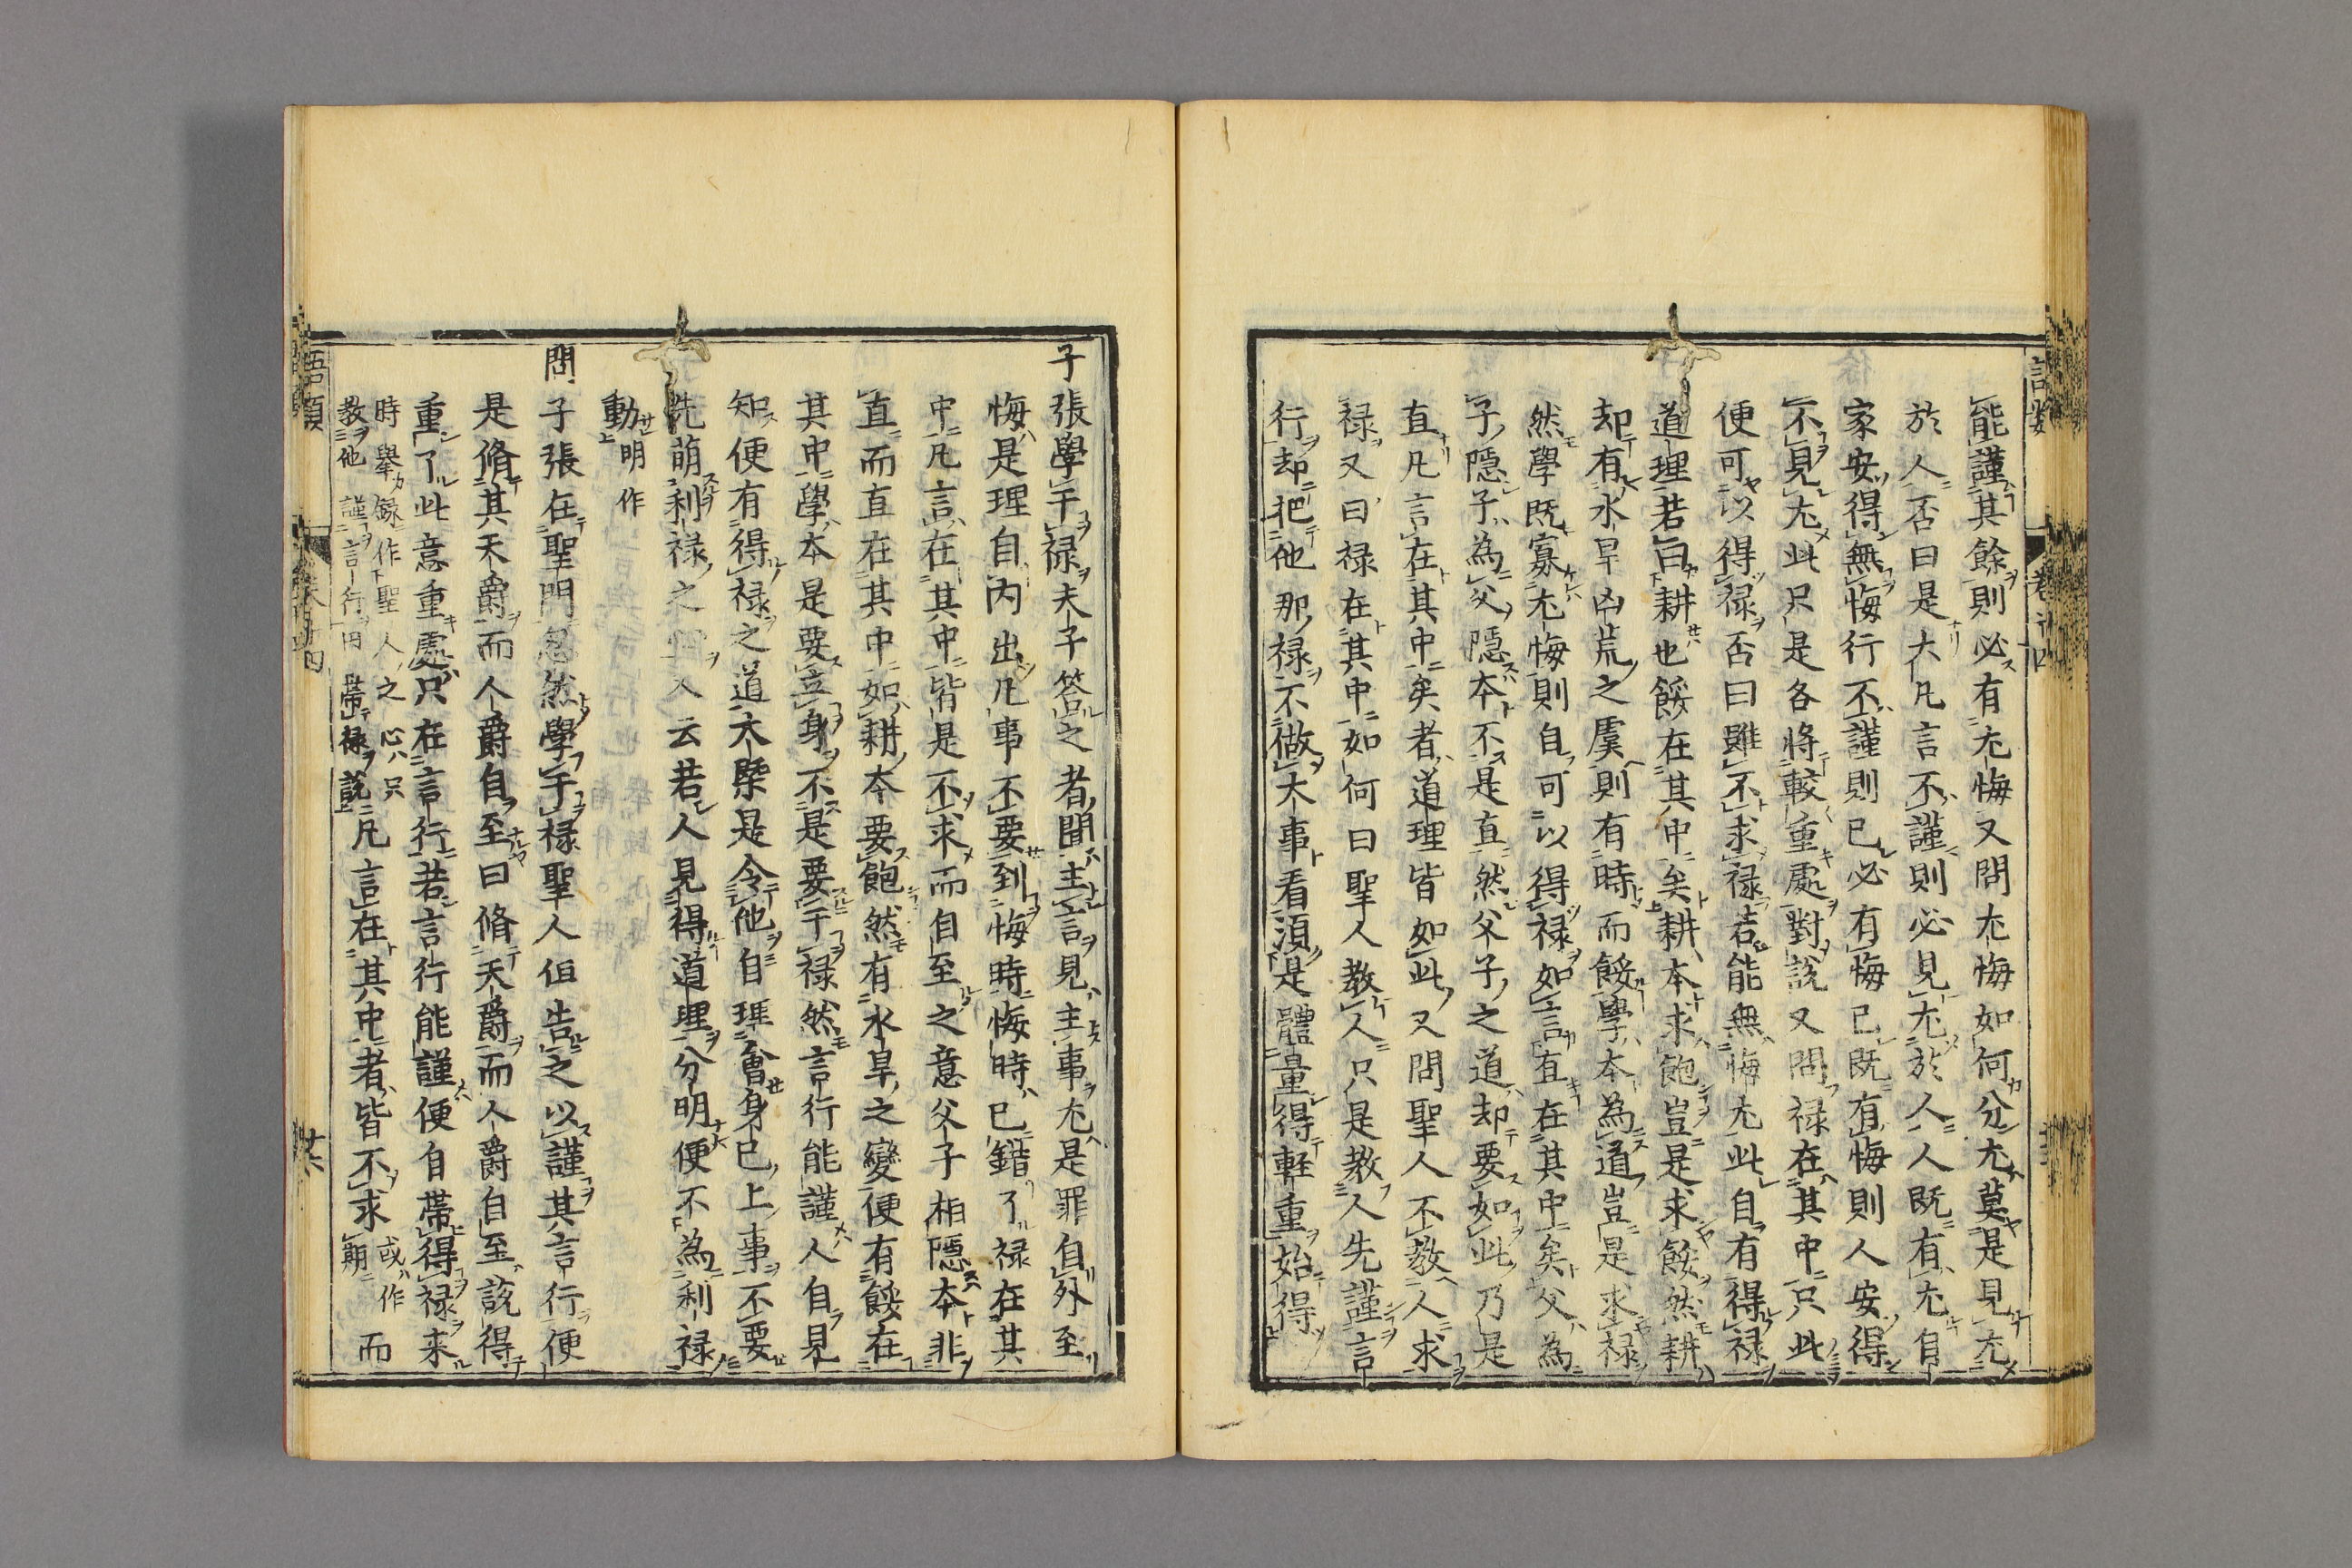 能謹其餘則必有尤悔又問尤悔如何分尤莫是見尤
於人否曰是大凡言不謹則必見尤於人人既有尤自
家安得無悔行不謹則已必有悔已既有悔則人安得
不見尤此只是各將較重處對說又問祿在其中只此
便可以得祿否曰雖不求祿若能無悔尤此自有得祿
道理若曰耕也餒在其中矣耕本求飽豈是求餒然耕
却有水旱凶荒之虞則有時而餒學本為道豈是求祿
然學既寡尤悔則自可以得祿如言直在其中矣父為
子隱子為父隱本不是直然父子之道却要如此乃是
直凡言在其中矣者道理皆如此又問聖人不教人求
祿又曰祿在其中如何曰聖人教人只是教人先謹言
行却把他那祿不做大事看須是體量得輕重始得
子張學干祿夫子答之者聞主言見主事尤是罪自外至
悔是理自內出凡事不要到悔時悔時已錯了祿在其
中凡言在其中皆是不求而自至之意父子相隱本非
直而直在其中如耕本要飽然有水旱之變便有餒在
其中學本是要立身不是要干祿然言行能謹人自見
知便有得祿之道大槩是令他自理會身已上事不要
先萌利祿之 又云若人見得道理分明便不為利祿
動明作
問子張在聖門忽然學干祿聖人但告之以謹其言行便
是脩其天爵而人爵自至曰脩天爵而人爵自至說得
重了此意重處只在言行若言行能謹便自帶得祿來
時舉錄作聖人之心只
教他謹言行因帶祿說凡言在其中者皆不求或作期而
語類
廿六